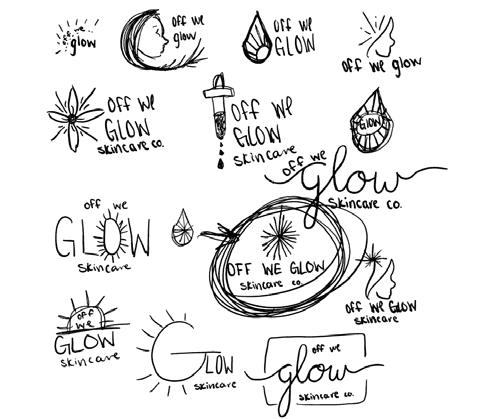 off we
glow
off we
glow
off we
GLOW
off we glow
off we
GLOW
skincare co.
off we
GLOW
skincare
GLOW
off we
glow
skincare co.
off we
GLOW
skincare
OFF WE GLOW
skincare co.
off we GLOW
skincare
off
we
GLOW
skincare
GLOW
skincare
off we
glow
skincare co.